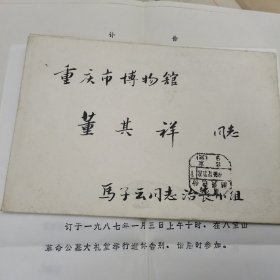 讣告
重庆市博物馆
董其祥 同志
马子云同志治丧小组
订于一九八七年一月三日上午十时，在八宝山
革命公墓大礼堂举行遗体告别，请届时参加。